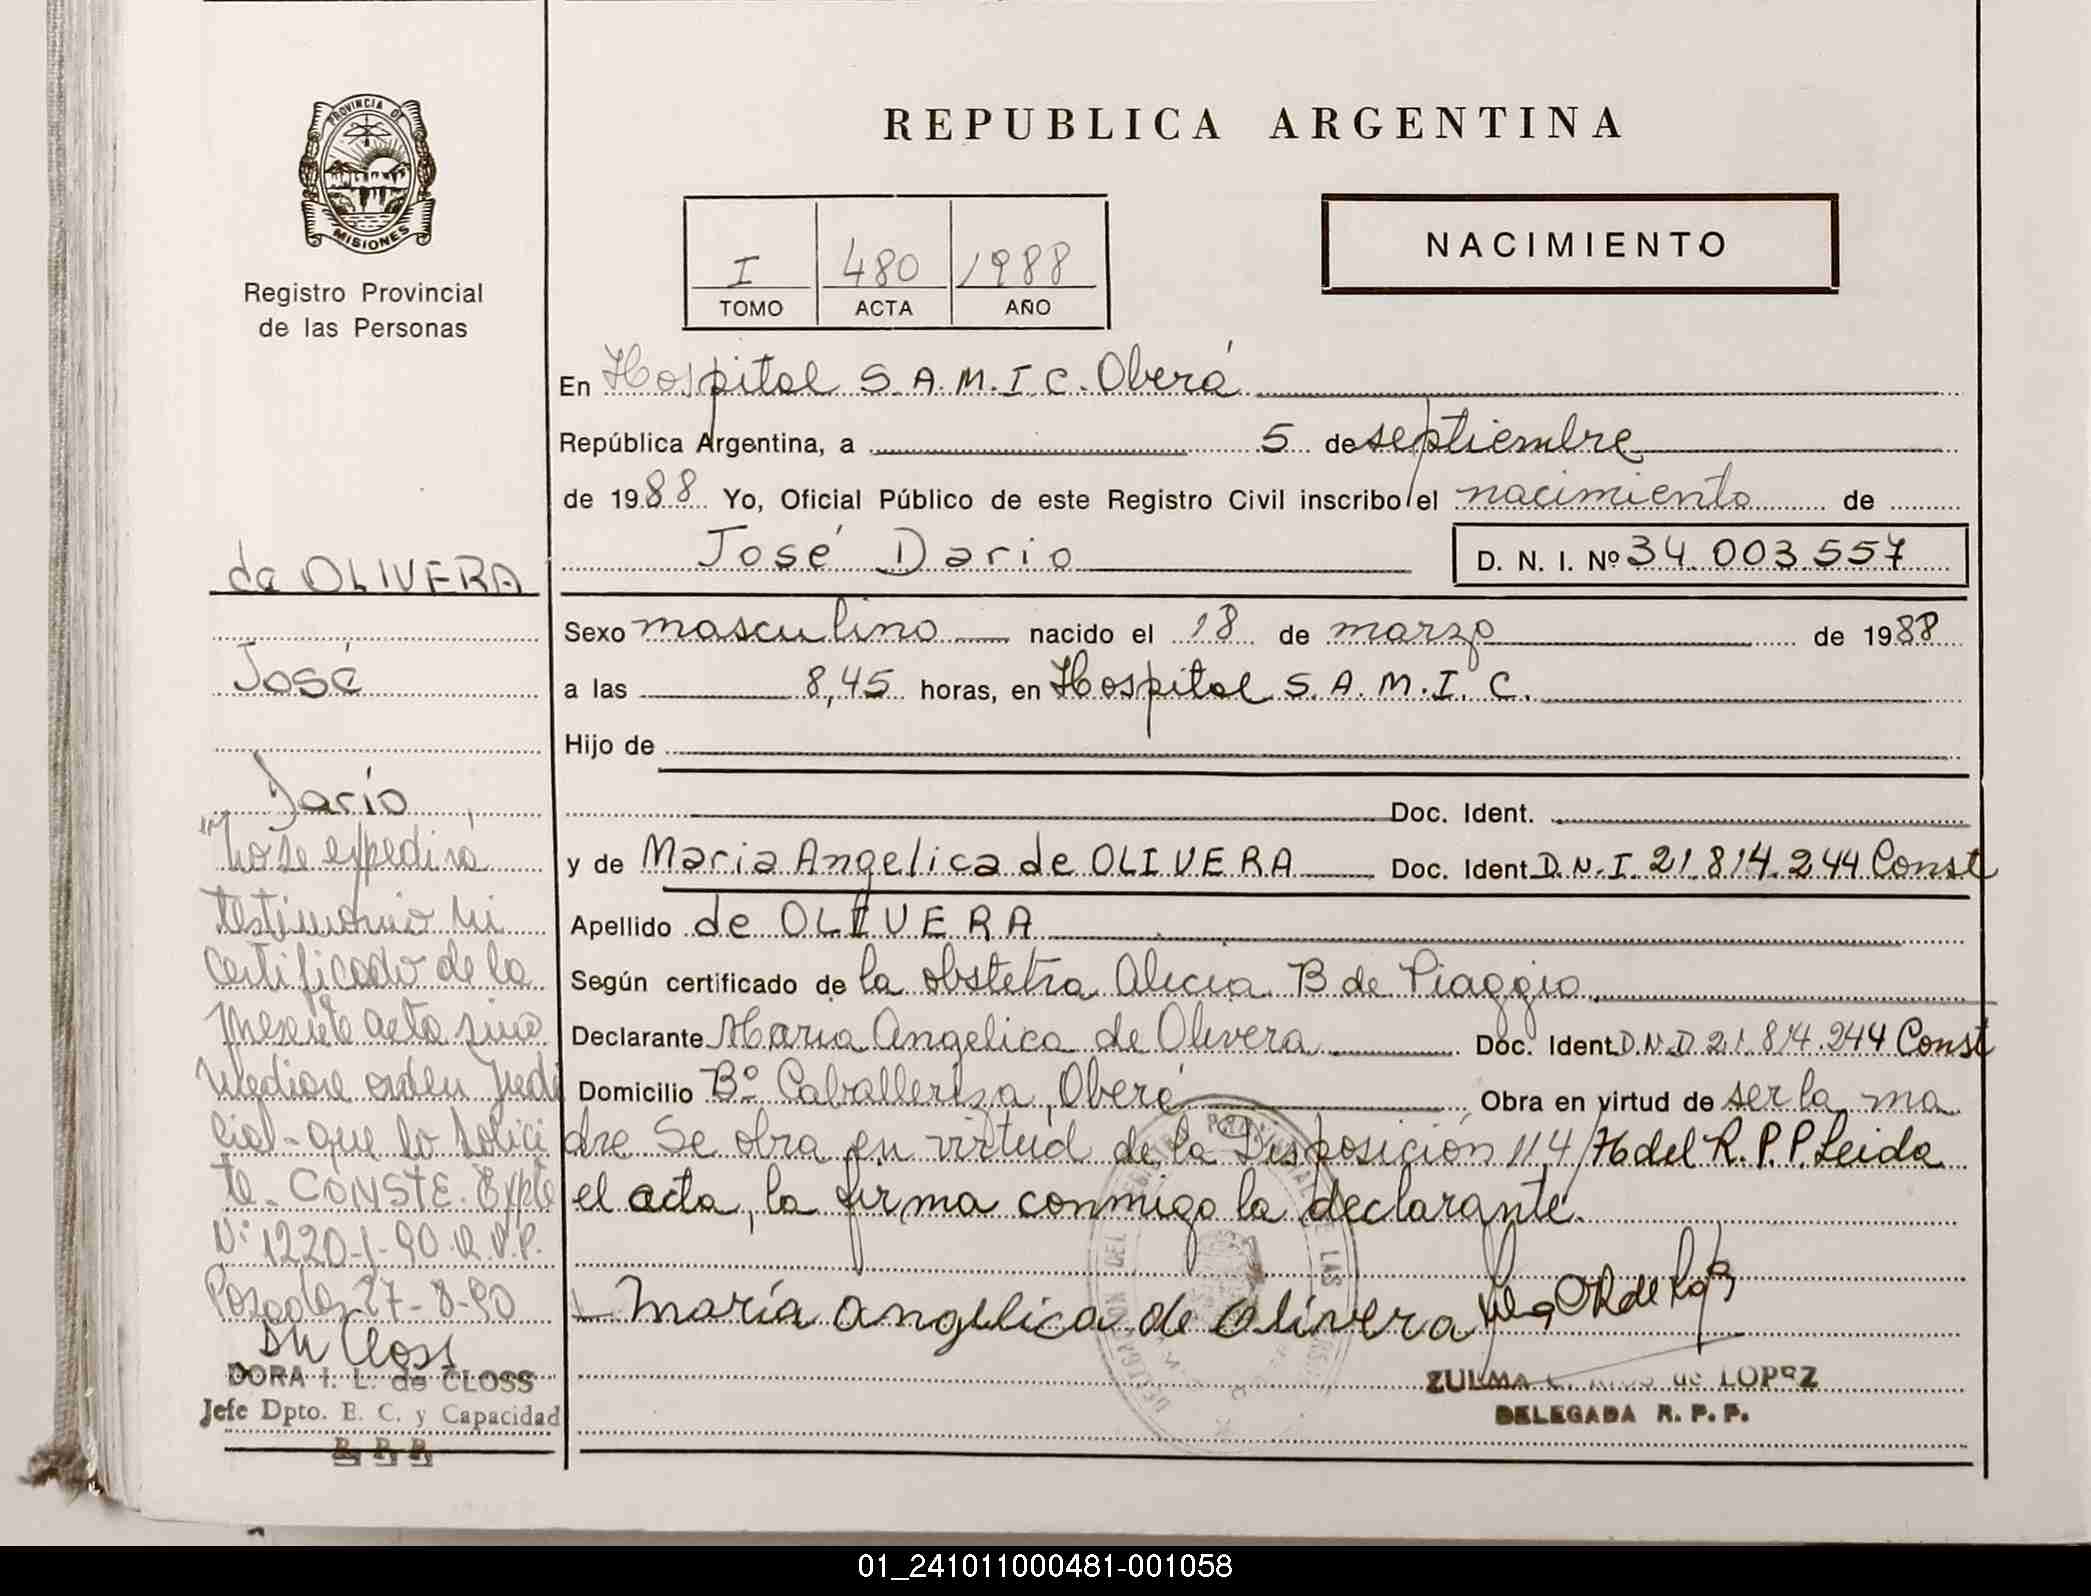 PROVINCIA DE
MISIONES
Registro Provincial
de las Personas
REPUBLICA ARGENTINA
I 480 1988
TOMO ACTA AÑO
NACIMIENTO
En Hospital S.A.M.I.C. Oberá
República Argentina, a 5 de septiembre
de 1988 Yo, Oficial Público de este Registro Civil inscribo el nacimiento de
José Dario D. N. I. Nº 34.003.557
Sexo masculino nacido el 18 de marzo de 1988
a las 8,45 horas, en Hospital S.A.M.I.C.
Hijo de
Doc. Ident.
y de Maria Angelica de OLIVERA Doc. Ident. D.N.I. 21.814.244 Const
Apellido de OLIVERA
Según certificado de la obstetra Alicia B de Piaggio
Declarante Maria Angelica de Olivera Doc. Ident. D.N.I. 21.814.244 Const
Domicilio Bº Caballeriza, Oberá Obra en virtud de ser la ma
dre Se obra en virtud de la Disposición 114/76 del R.P.P. Leida
el acta, la firma conmigo la declarante.
maría angelica de olivera
ZULMA de LOPEZ
DELEGADA R. P. P.
de OLIVERA
José
Darío
"No se expedirá
testimonio ni
certificado de la
presente acta sino
mediare orden Judi
cial - que lo solici
te - CONSTE. Expte
Nº 1220-J-90-R.P.P.
Posadas 27-8-90
DORA I. L. de CLOSS
Jefe Dpto. E. C. y Capacidad
R. P. P.
01_241011000481-001058